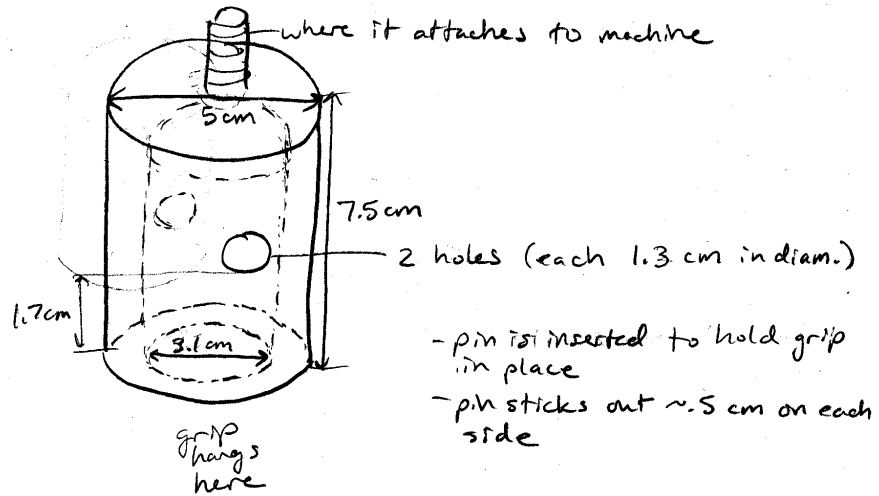 where it attaches to machine
5cm
7.5cm
2 holes (each 1.3 cm in diam.)
1.7cm
3.1cm
- pin is inserted to hold grip
in place
- pin sticks out ~.5 cm on each
side
grip
hangs
here